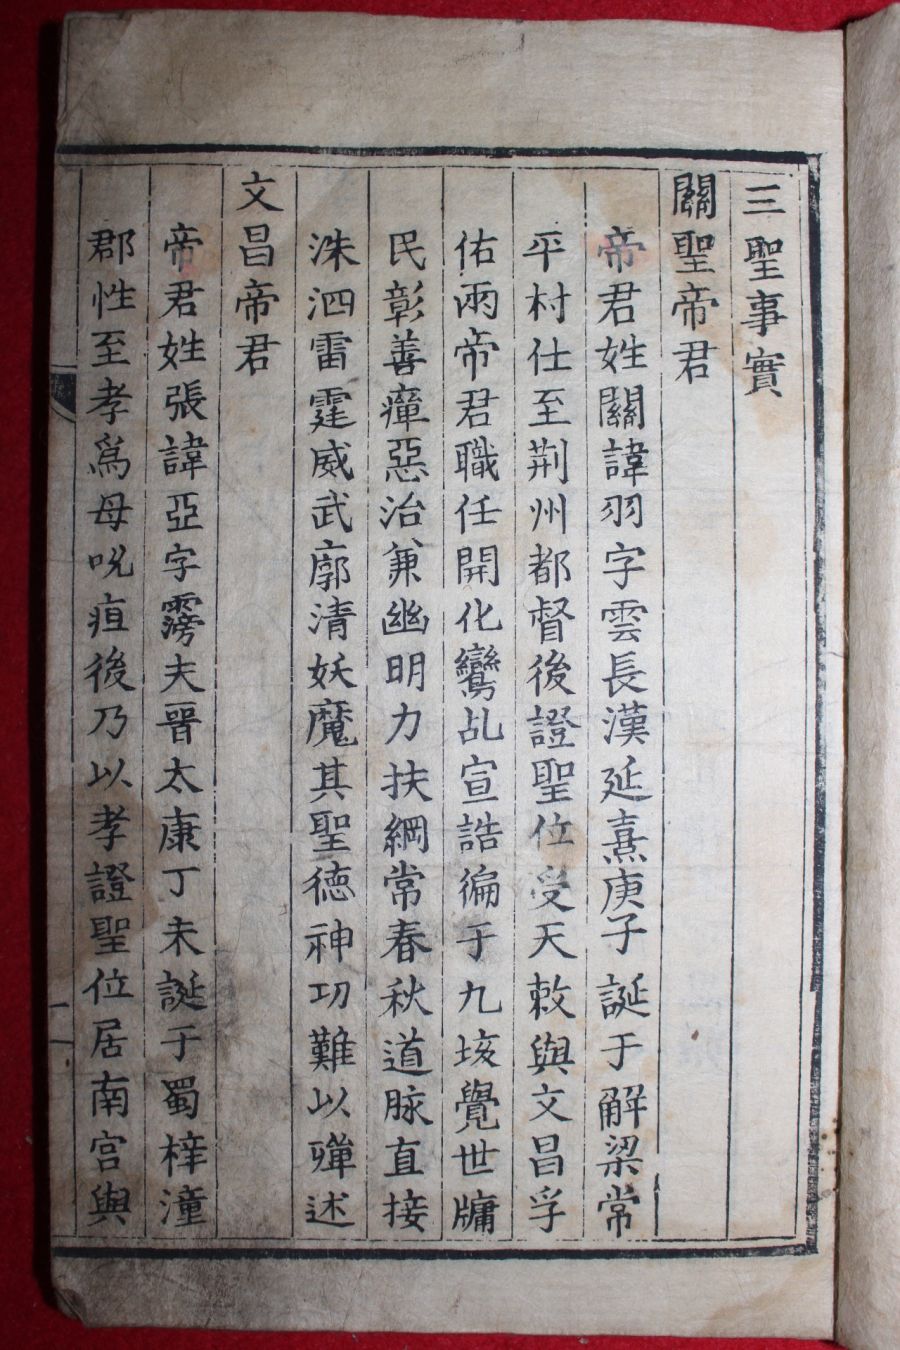 三聖事實
關聖帝君
帝君姓關諱羽字雲長漢延熹庚子誕于解梁常
平村仕至荊州都督後證聖位受天敕與文昌孚
佑兩帝君職任開化鸞乩宣誥徧于九垓覺世牖
民彰善癉惡治兼幽明力扶綱常春秋道脉直接
洙泗雷霆威武廓清妖魔其聖德神功難以殫述
文昌帝君
帝君姓張諱亞字霶夫晉太康丁未誕于蜀梓潼
郡性至孝爲母吮疽後乃以孝證聖位居南宮與